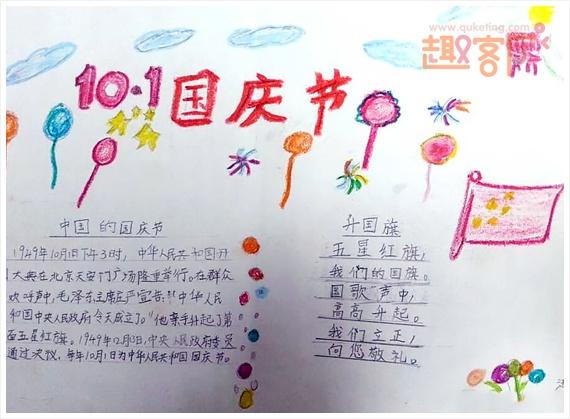 www.quketing.com
趣客
10.1国庆节
中国的国庆节
1949年10月1日下午3时，中华人民共和国开
大典在北京天安门广场隆重举行。在群众
欢呼声中，毛泽东主席庄严宣告："中华人民
和国中央人民政府今天成立了。"他亲手升起了第
面五星红旗。1949年12月3日，中央人民政府委员
通过决议，每年10月1日为中华人民共和国国庆节。
升国旗
五星红旗，
我们的国旗。
国歌"声中，
高高升起。
我们立正，
向您敬礼。